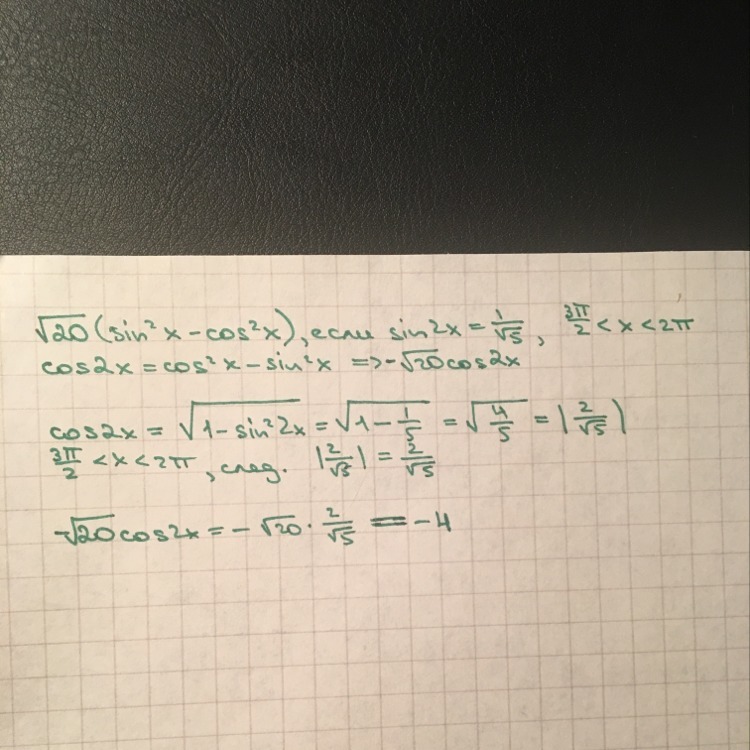 √20 (sin²x - cos²x), если sin2x = 1/√5, 3π/2 < x < 2π
cos2x = cos²x - sin²x => -√20 cos2x
cos2x = √(1 - sin²2x) = √(1 - 1/5) = √(4/5) = |2/√5|
3π/2 < x < 2π, след. |2/√5| = 2/√5
-√20 cos2x = - √20 · 2/√5 = -4